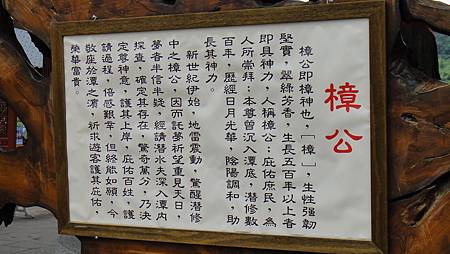 樟公
樟公即樟神也，「樟」，生性强韌
堅實，翠綠芳香，生長五百年以上者
即具神力，人稱樟公；庇佑庶民，為
人所崇拜：本尊曾沉入潭底，潛修數
百年，歷經日月光華，陰陽調和，助
長其神力。
新世紀伊始，地雷震動，驚醒潛修
中之樟公，因而託夢祈望重見天日，
夢者半信半疑，經請潛水夫深入潭內
探查，確定其存在，驚奇萬分，乃決
定尊神意，護其上岸，庇佑百姓，護
請過程，倍感艱辛，但終能如願，今
敬座於潭之濱，祈求遊客護其庇佑，
榮華富貴。